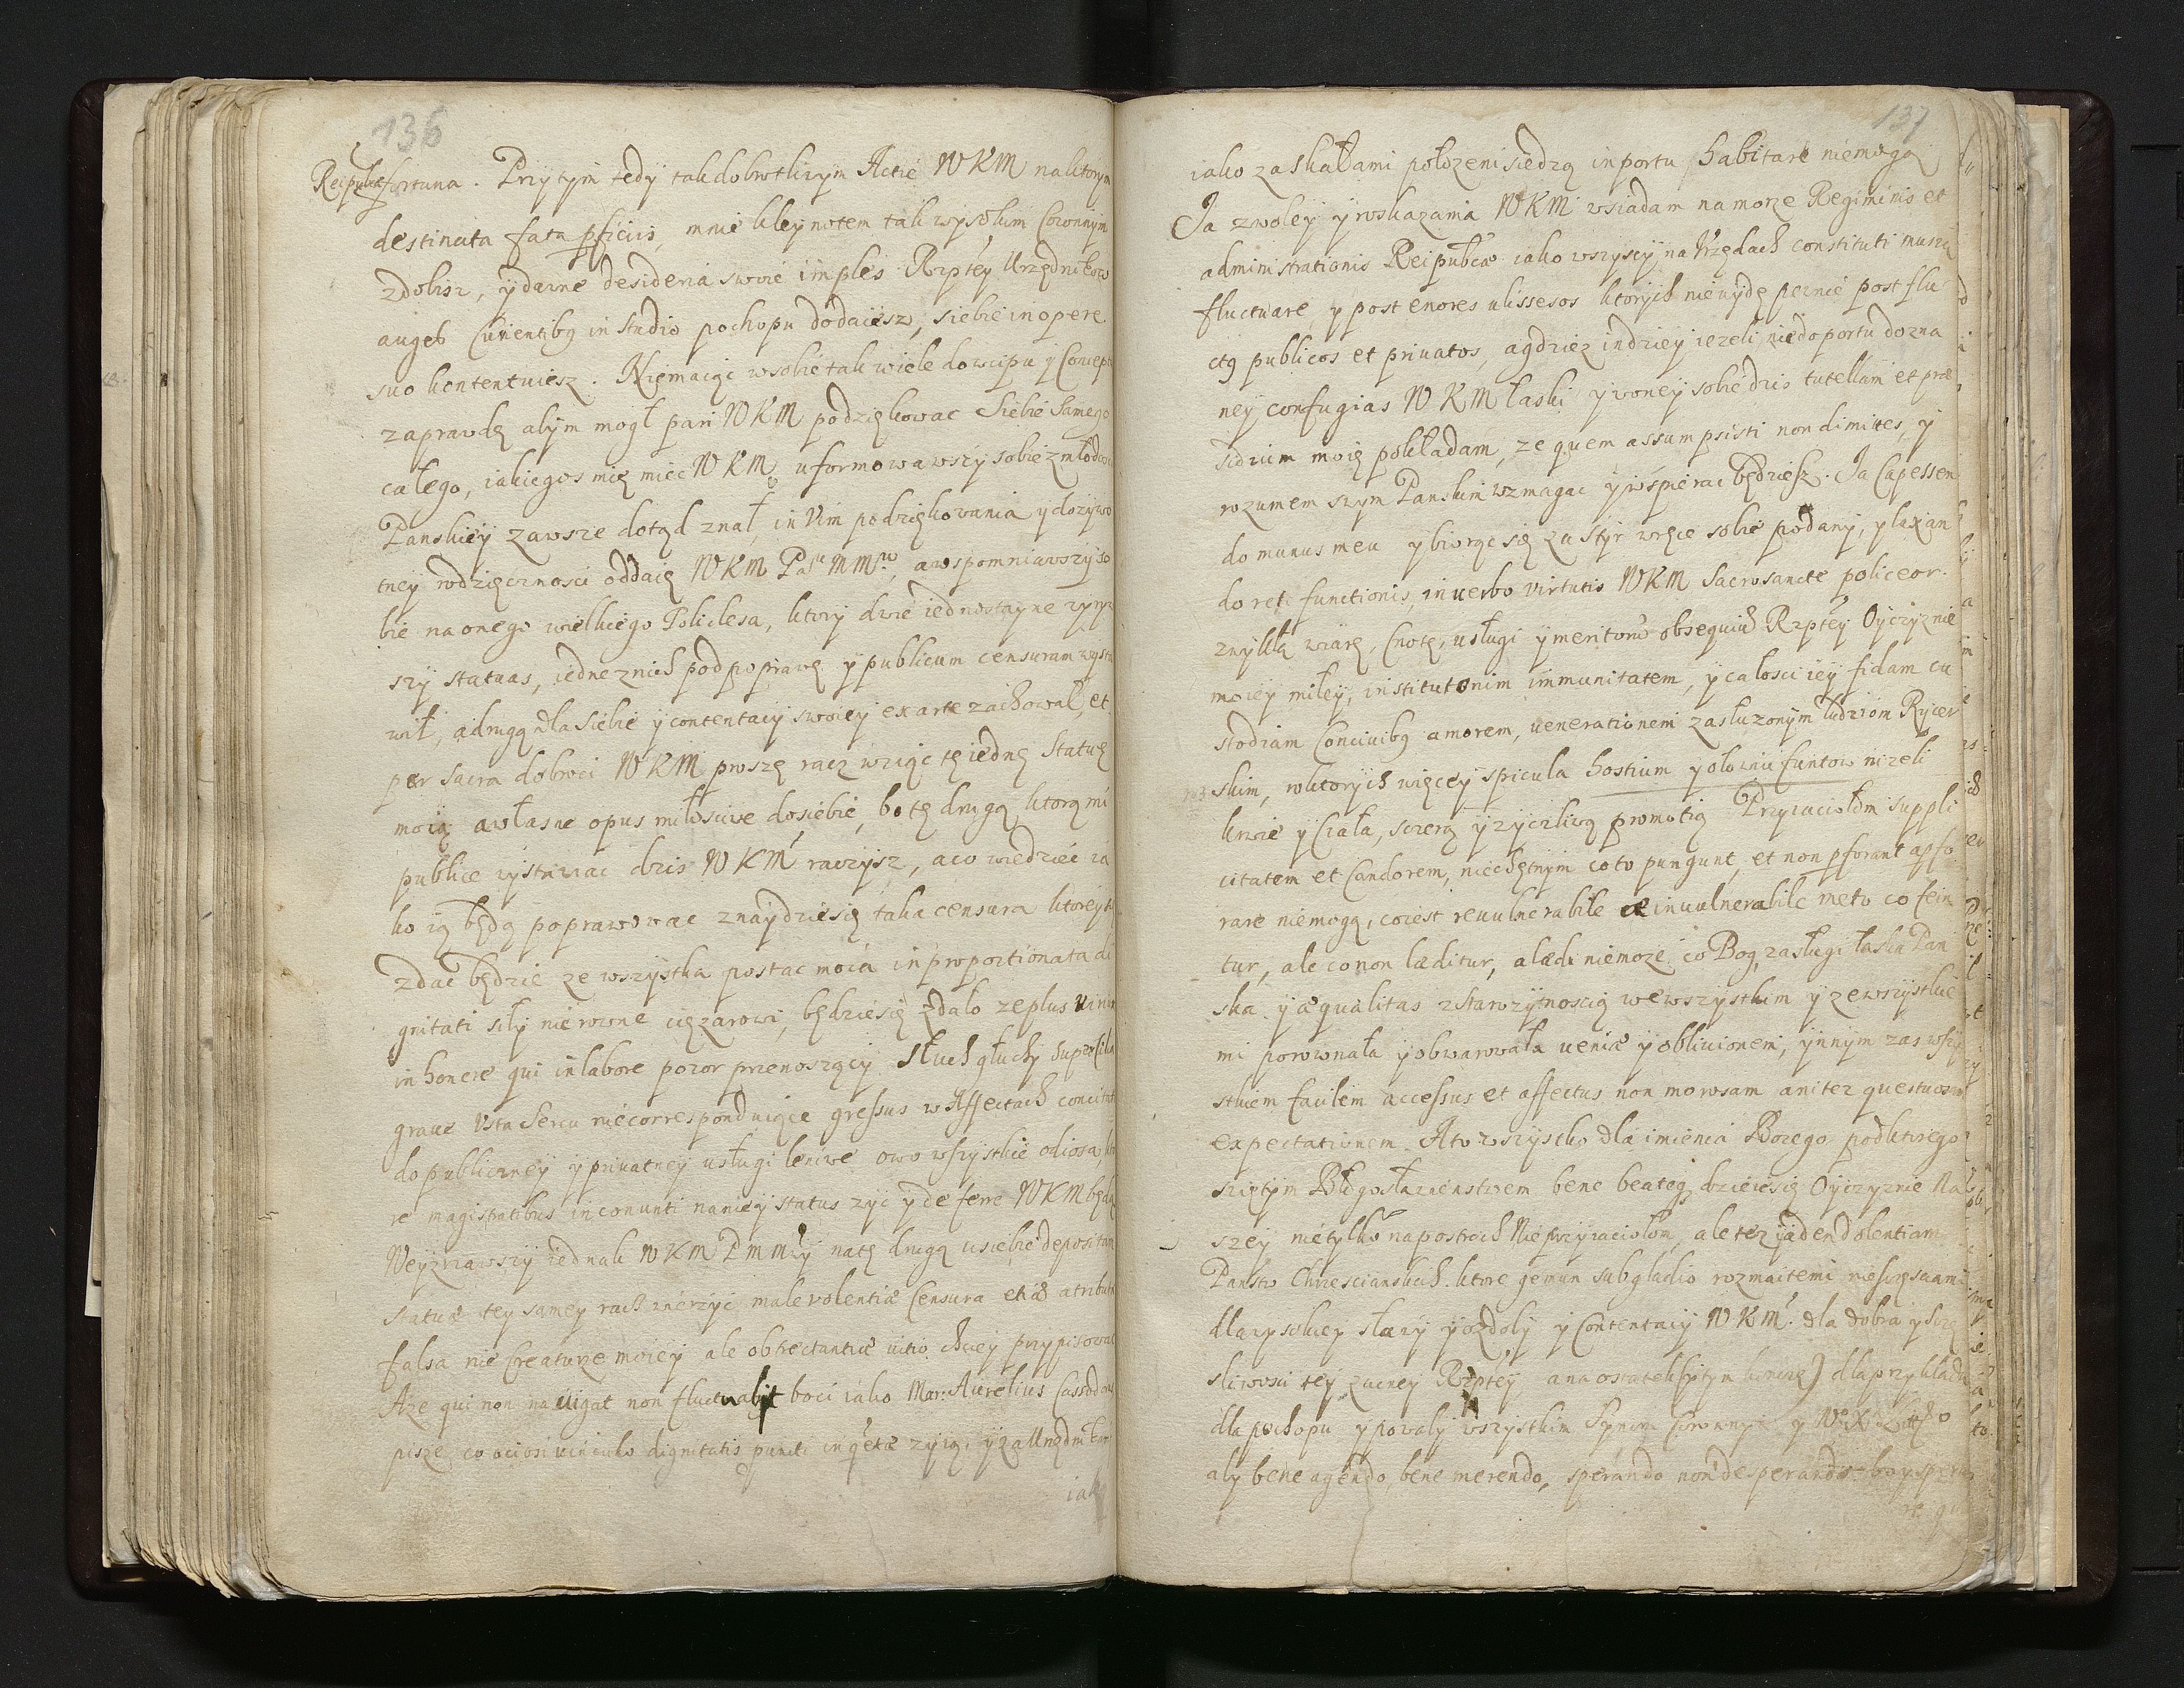 136
Reipublicæ fortuna. Przytym tedy tak dobrotliwym Actie WKM na ktorym
destinata fata pficiis, mnie kleynotem tak wysokim Coronnym
zdobisz, y dawne desideria swoie imples Rzptey Urzędnikow
auges Currentibq in studio pochopu dodaiesz, siebie in opere
suo kontentuiesz. Niemaiąc w sobie tak wiele dowcipu y Concept
zaprawdę abym mogł pari WKM podziękowac Siebie samego
całego, iakiegos mię miec WKM uformowawszy sobie z młodosci
Panskiey zawsze dotąd znał, in Vim podziękowania y dozywo
tney wdzięcznosci oddaię WKM Pa MMu, a wspomniawszy so
bie na onego wielkiego Polikleta, ktory dwie iednostayne
szy statuas, iednę z nich pod poprawę y publicum censuram wysta
wił, a drugą dla siebie y contentacij swoiey ex arte zachował, et
per sacra dobroci WKM proszę racz wziąc tę iednę Statuę
moię a własne opus miłosciwe do siebie, bo tę drugą ktorą mi
publice wystawiac dzis WKM raczysz, a co wiedziec ia
ko ią będą poprawowac znaydzie się taka censura ktorey
zdac będzie ze wszystka postac moia inproportionata di
gnitati siły nierowne cięzarowi, będzie się zdało ze plus
in honere qui in labore pozor przenoszący Słuch głuchy
graue Usta Sercu niecorrespondniące gressus w Affectach
do publiczney y priuatney usługi leniwe owo wszystkie odiosa,
re magistratibus in conuniti na niey status zyc y deferre WKM będą
Weyzrzawszy iednak WKM PMMły na tę drugą u siebie depositam
statuæ tey samey racz wierzyc maleuolentiæ Censura
falsa nie Creaturze moiey ale obtrectantiæ uitio chciey przypisowac
Aze qui non nauigat non fluctuabit boci iako Mar: Aurelius
pisze, co ociosi uinculo dignitatis puncti in qete zyią, y za Urzędnikami
iak
137
iako za skałami połozeni siedzą in portu habitare niemogą
Ja z woley y wskazania WKM wsiadam na morze Regiminis et
administrationis Reipublicæ iako wszyscy na Urzędach constituti muszą
fluctuare, y post errores ulissesos ktorych nie uydę pewnie post flu
ctq publicos et priuatos, a gdziez indziey iezeli nie do portu dozna
ney confugias WKM łaski y w oney sobie dzis tutellam et præ
sidium moię pokładam, ze quem assumpsisti non dimittes, y
rozumem swym Panskim wzmagac y wspierac będziesz. Ja Capessen
do munus meu y biorąc się za styr w ręce sobie podany, y laxan
do rete functionis, in uerbo virtutis WKM Sacrosancte policeor.
zwykłą wiarę, Cnotę, usługi y meritorū obsequiū Rzptey Oyczyznie
moiey miłey, institutonim immunitatem, y całosci iey fidam cu
stodiam Conciuibq amorem, uenerationem zasłuzonym ludziom Rycer
skim, w ktorych więcey spicula hostium y ołowiu funtow nizeli
krwie y Ciała, szczerą y zyczliwą promotią Przyiaciołom suppli
citatem et Candorem, niechętnym co to pungunt, et non pforant a pfo
rare niemogą, co iest reuulnerabile et inuulnerabile nie to co fein
tur, ale co non læditur, a lædi niemoze co Bog zasługi łaska Pan
ska y æqualitas z starozytnoscią we wszystkim y ze wszystkie
mi porownała y obwarowała ueniæ y obliuionem, ynnym zas wszy
stkiem facilem accessus et affectus non morosam ani tez questuosam
expectationem A to wszystko dla imienia Bozego pod ktorego
swiętym Błogosławienstwem bene beateq dzieie się Oyczyznie Na
szey nie tylko na postrach Nieprzyiaciołom, ale tez y ad
Panstw Chrzescianskich. ktore gemun sub gladio rozmaitemi niesczęsciami
dla wysokiey sławy y ozdoby y Contentacij WKM dla dobra y scze
sliwosci tey zacney Rzptey, a na ostatek (y tym kończę) dla przykładu
dla pochopu y powaby wszystkim Synom Coronnym y
aby bene agendo, bene merendo, sperando non desperando bo y spera